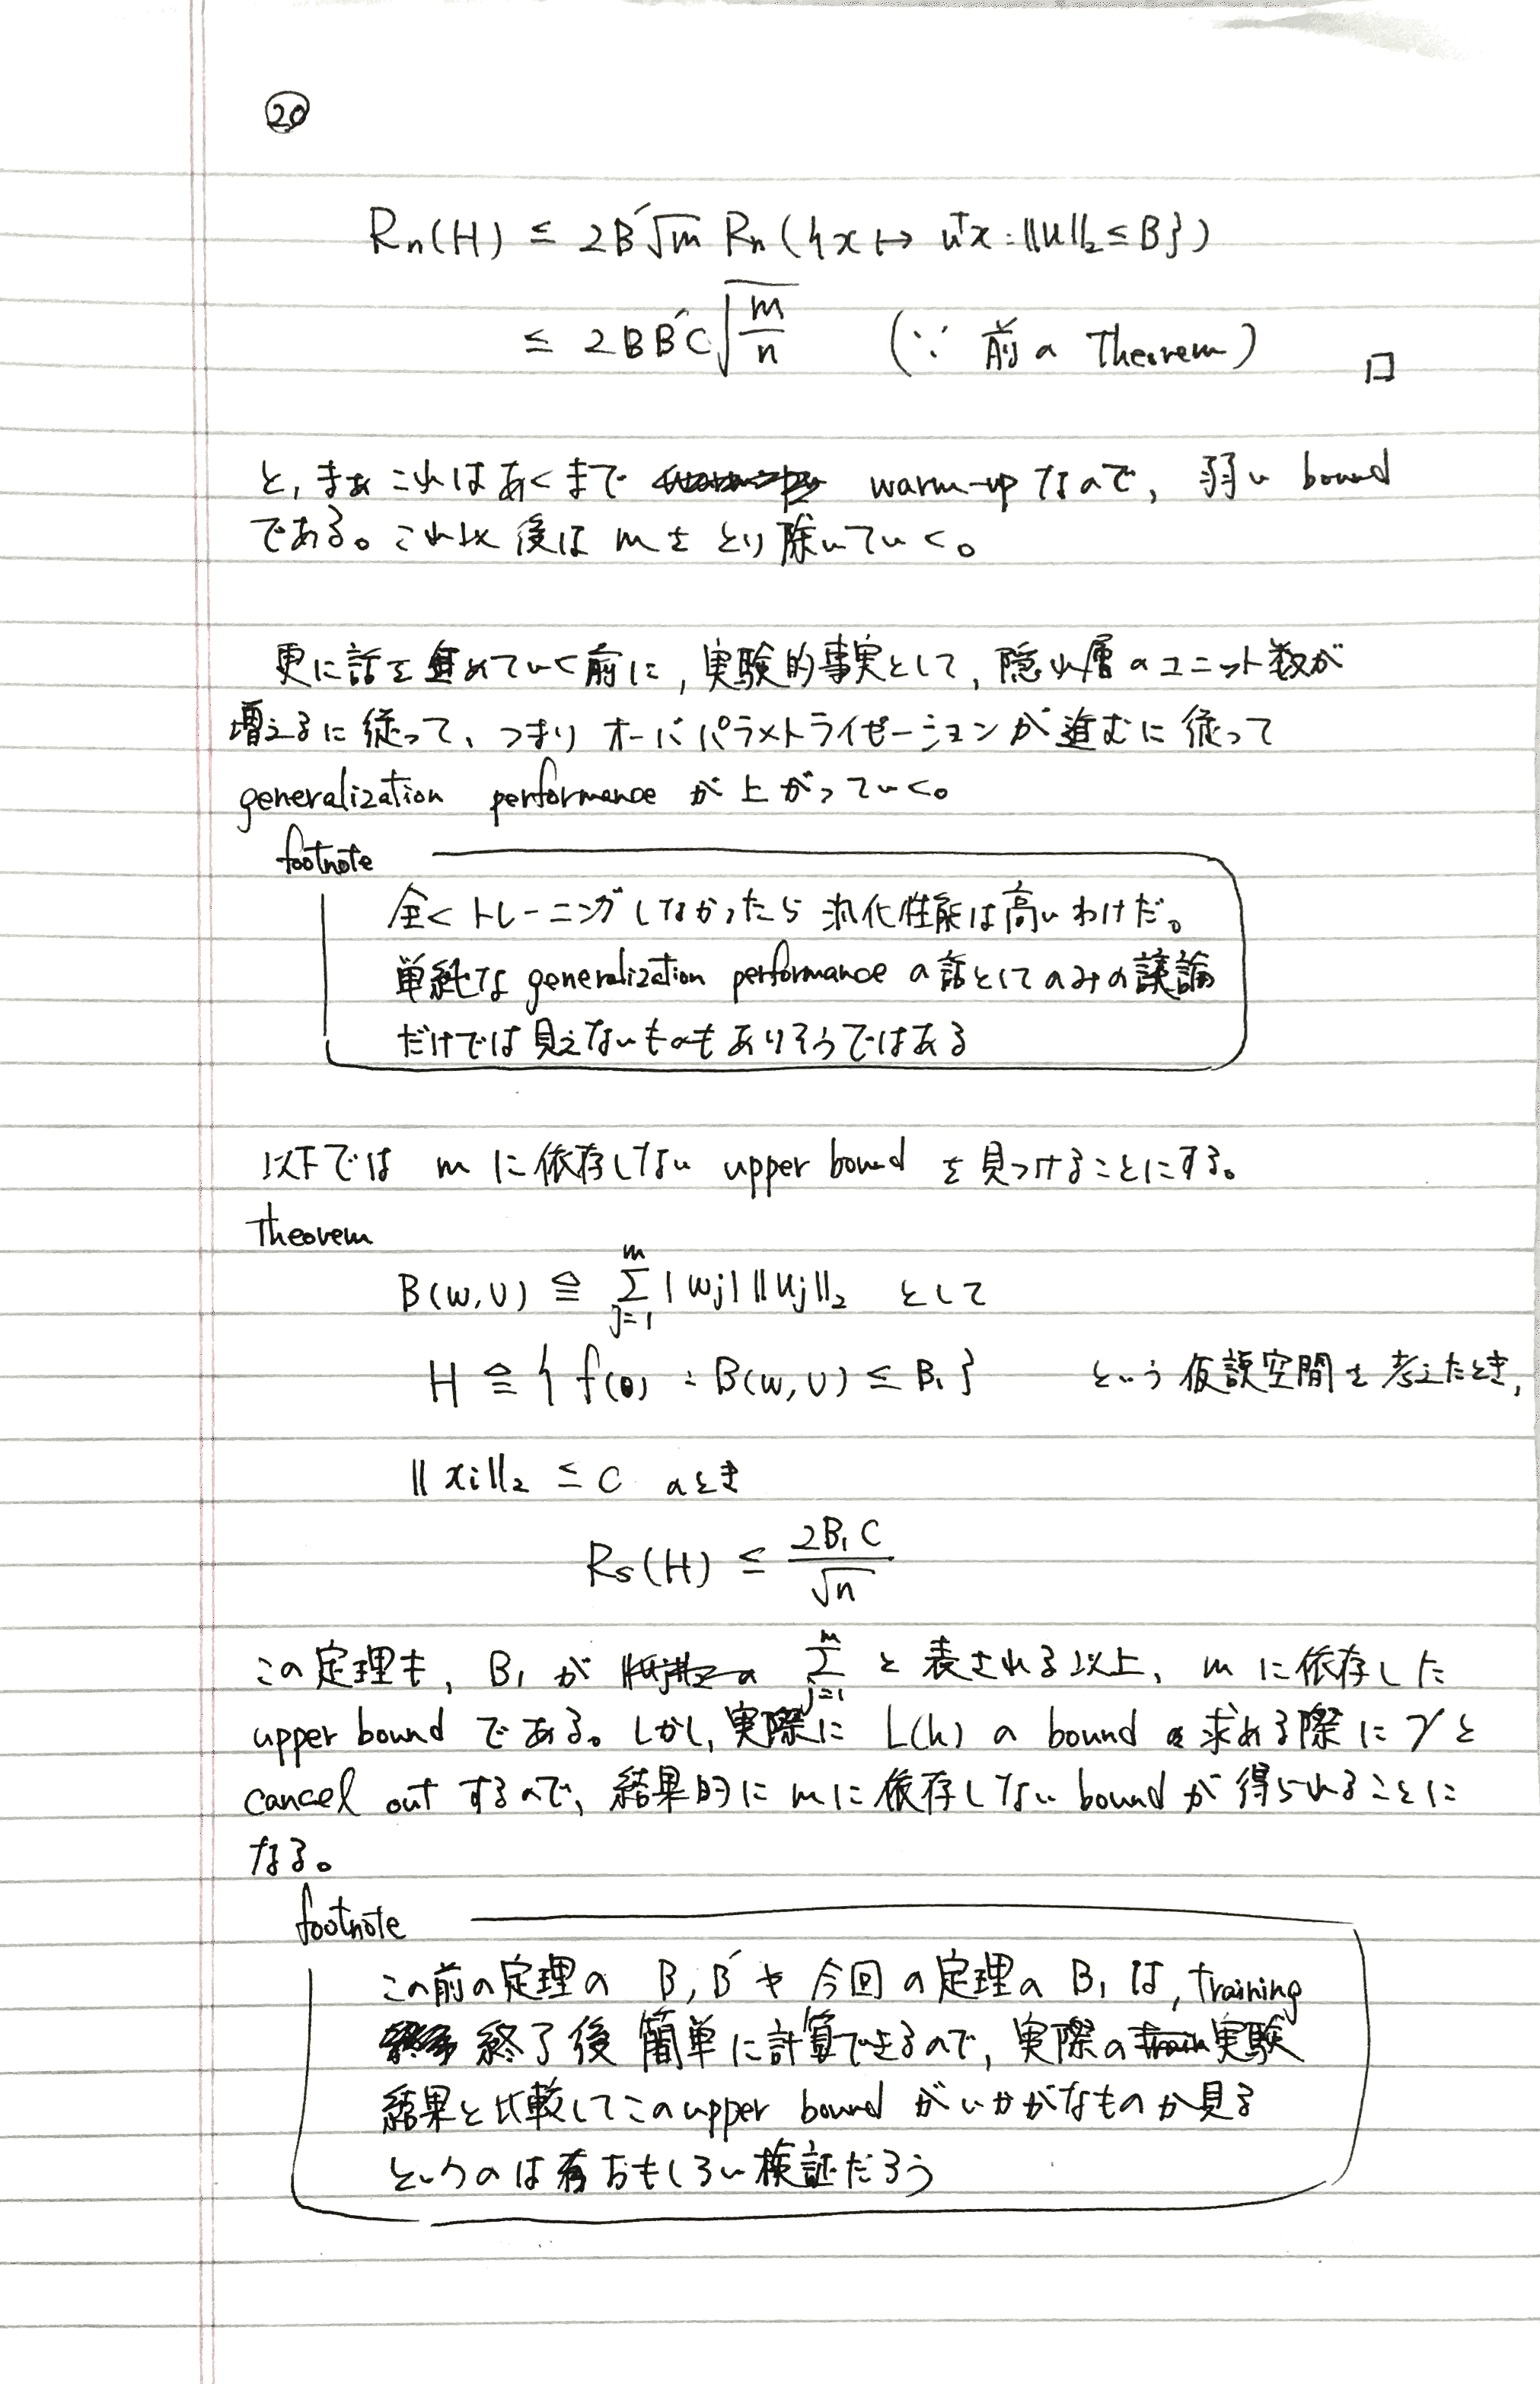 ⑳
Rn(H) ≤ 2B'√m Rn({x ↦ uᵀx : ‖u‖₂ ≤ B})
≤ 2BB'C√(m/n) (∵ 前の Theorem) □
と, まぁ これはあくまで warm-up なので, 弱い bound
である。これ以後は m を とり除いていく。
更に話を進めていく前に, 実験的事実として, 隠れ層のユニット数が
増えるに従って、つまり オーバパラメトライゼーションが進むに従って
generalization performance が上がっていく。
footnote
全くトレーニングしなかったら汎化性能は高いわけだ。
単純な generalization performance の話としてのみの議論
だけでは見えないものもありそうではある
以下では m に依存しない upper bound を見つけることにする。
Theorem
B(w,U) ≙ Σ_{j=1}^{m} |wj| ‖uj‖₂ として
H ≙ {f(θ) : B(w,U) ≤ B₁} という仮説空間を考えたとき,
‖xi‖₂ ≤ C のとき
Rs(H) ≤ 2B₁C/√n
この定理も, B₁ が Σ_{j=1}^{m} と表される以上, m に依存した
upper bound である。しかし, 実際に L(h) の bound を求める際に γ と
cancel out するので, 結果的に m に依存しない bound が得られることに
なる。
footnote
この前の定理の B, B' や 今回の定理の B₁ は, training
終了後 簡単に計算できるので, 実際の実験
結果と比較してこの upper bound がいかがなものか見る
というのは おもしろい検証だろう